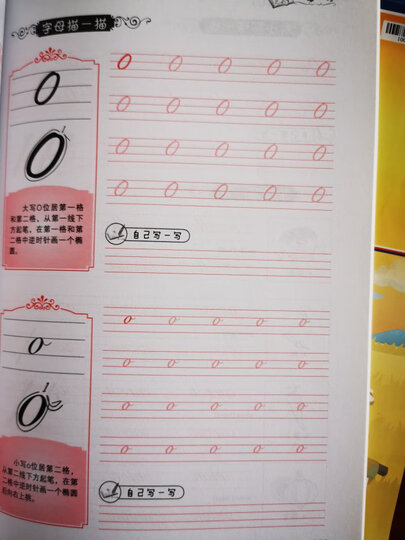 字母描一描
O
O O O O O
O
O O O O O
O O O O O
O O O O O
大写O位居第一格
和第二格，从第一线下
方起笔，在第一格和第
二格中逆时针画一个椭
圆。
自己写一写
o
o o o o o
o o o o o
o
o o o o o
o o o o o
小写o位居第二格，
从第二线下方起笔，在第
二格中逆时针画一个椭圆
后向右上挑。
自己写一写